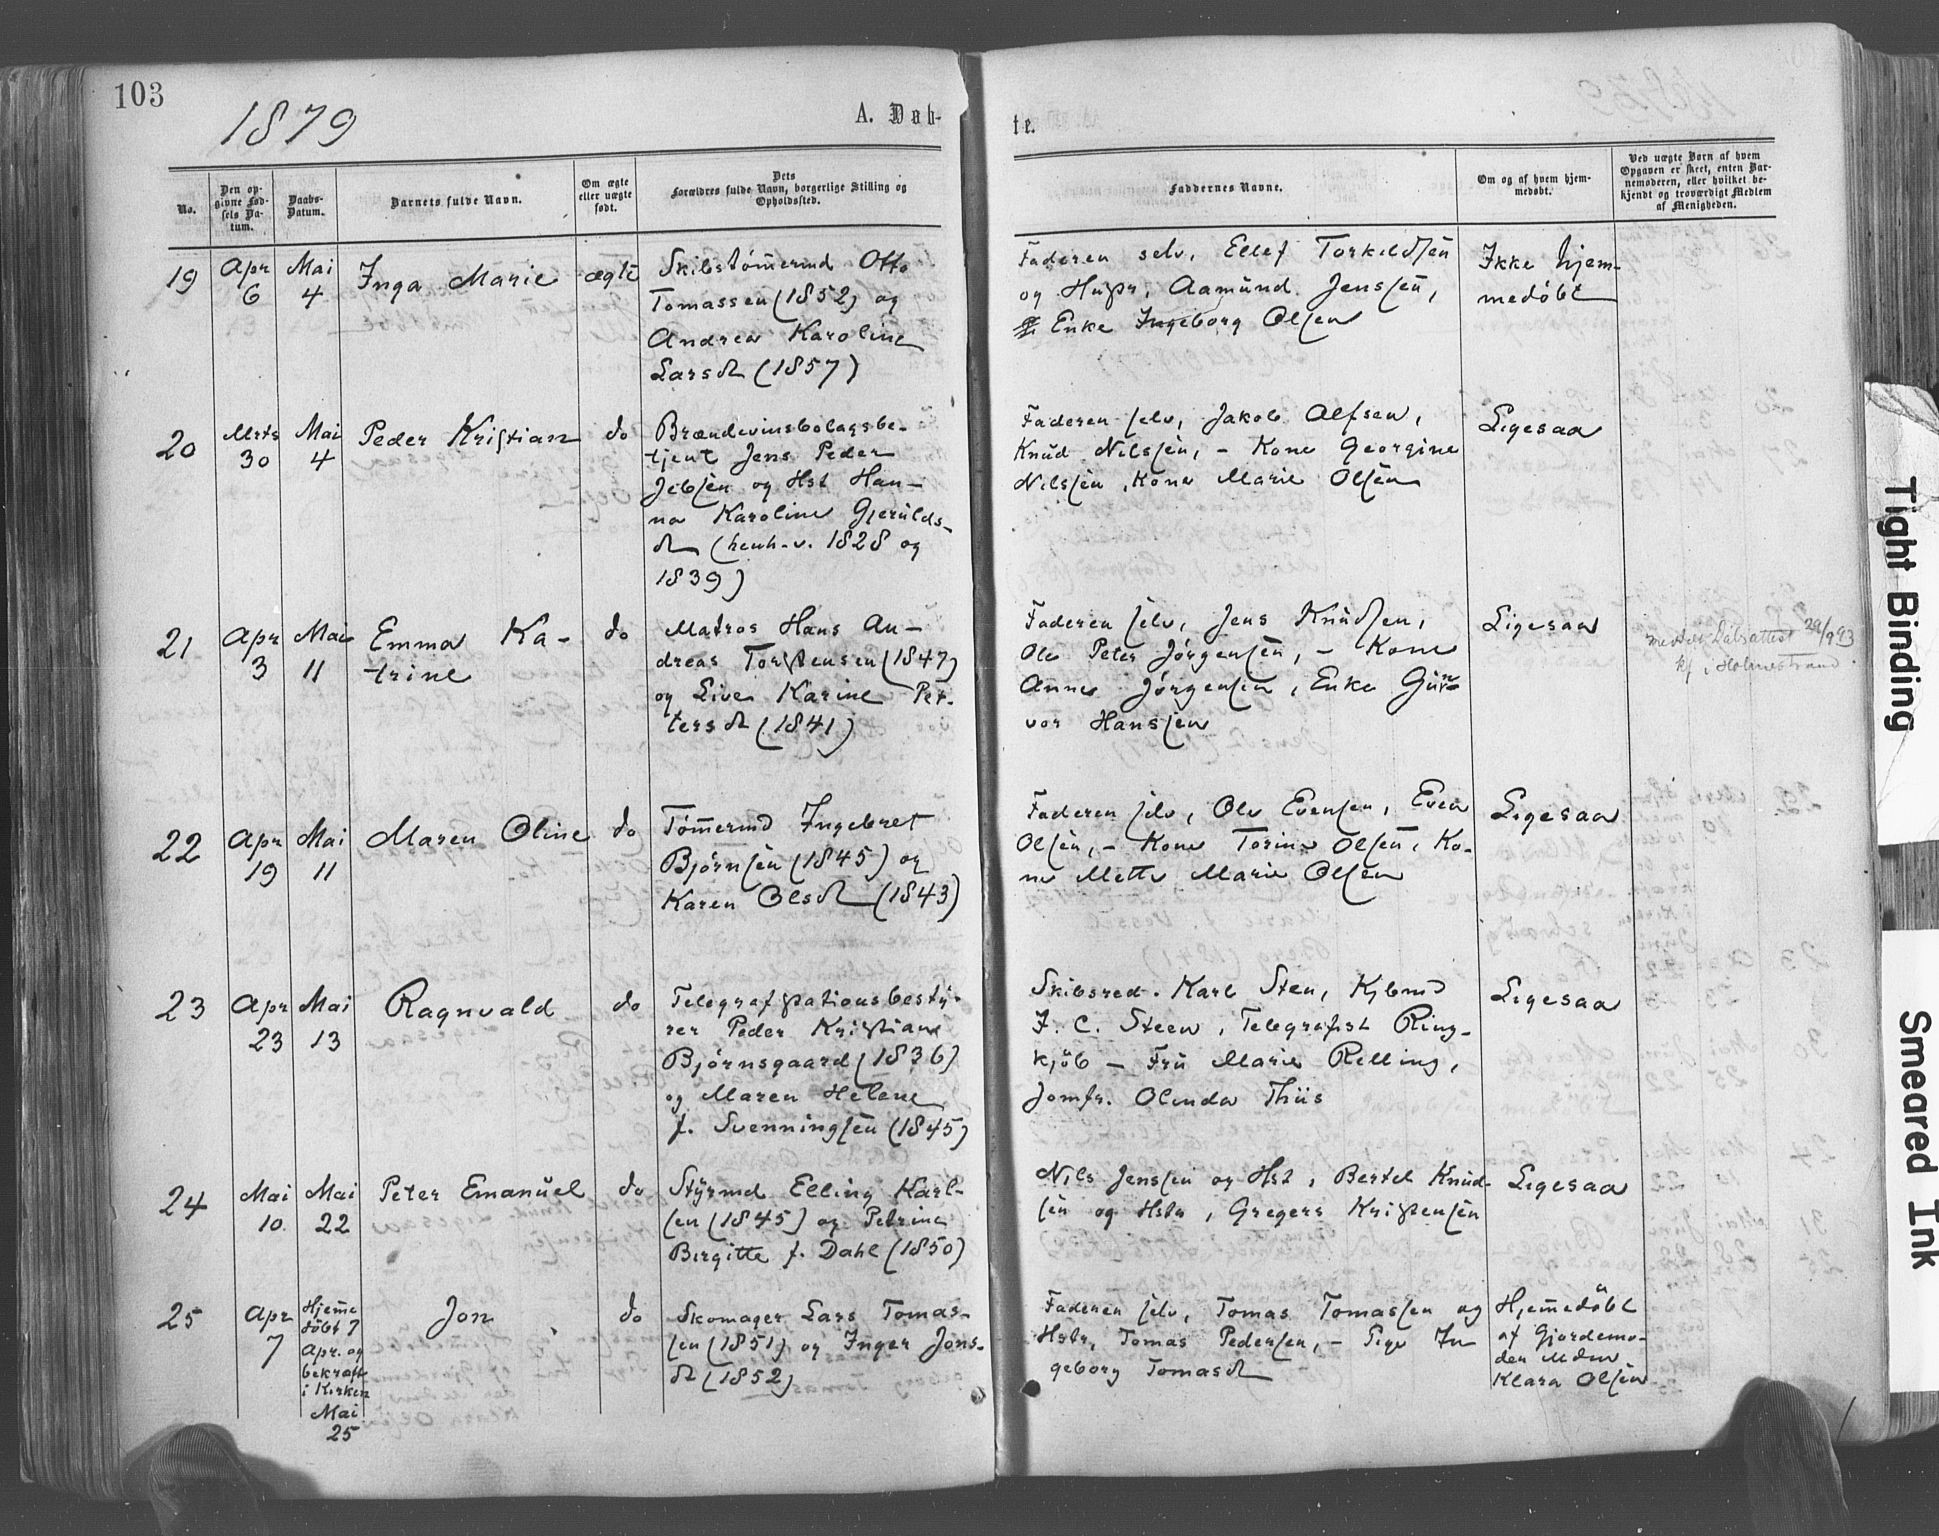 103
1879
A. Døb-
te.
No.
Den op-
givne Fød-
sels Da-
tum.
Daabs-
Datum.
Barnets fulde Navn.
Om ægte
eller uægte
født.
Dets
Forældres fulde Navn, borgerlige Stilling og
Opholdssted.
Faddernes Navne.
Om og af hvem hjem-
medøbt.
Ved uægte Børn af hvem
Opgaven er skeet, enten Bar-
nemoderen, eller hvilket be-
kjendt og troværdigt Medlem
af Menigheden.
19
Apr
6
Mai
4
Inga Marie
ægte
Skibstømermd Otto
Tomassen (1852) og
Andrea Karoline
Larsd (1857)
Faderen selv, Ellef Torkildsen
og Hustr, Aamund Jensen,
Enke Ingeborg Olsen
Ikke hjem-
medøbt
20
Mrts
30
Mai
4
Peder Kristian
do
Brændevinsbolagsbe-
tjent Jens Peder
Jebsen og Hst Han-
na Karoline Gjerulds-
d (henh.v. 1828 og
1839)
Faderen selv, Jakob Alfsen,
Knud Nilssen, - Kone Georgine
Nilssen, Kone Marie Olsen
Ligesaa
21
Apr
3
Mai
11
Emma Ka-
trine
do
Matros Hans An-
dreas Torstensen (1847)
og Live Karine Pet-
tersd (1841)
Faderen selv, Jens Knudsen,
Ole Peter Jørgensen, - Kone
Anne Jørgensen, Enke Gun-
vor Hanssen
Ligesaa
Dåbsattest 29/9 93
i Holmestrand
22
Apr
19
Mai
11
Maren Oline
do
Tømermd Ingebret
Bjørnsen (1845) og
Karen Olsd (1843)
Faderen selv, Ole Evensen, Even
Olsen, - Kone Torine Olsen, Ko-
ne Mette Marie Olsen
Ligesaa
23
Apr
23
Mai
13
Ragnvald
do
Telegrafstationsbesty-
rer Peder Kristian
Bjørnsgaard (1836)
og Maren Helene
f. Svenningsen (1845)
Skibsred. Karl Sten, Kjbmd
J. C. Steen, Telegrafist Ring-
kjöb - Fru Marie Relling,
Jomfr. Olinda Thiis
Ligesaa
24
Mai
10
Mai
22
Peter Emanuel
do
Styrmd Elling Karl-
sen (1845) og Petrine
Birgitte f. Dahl (1850)
Nils Jenssen og Hst, Bertel Knud-
sen og Hstr, Gregers Kristensen
Ligesaa
25
Apr
7
Hjemme
døbt 7
Apr. og
bekræft
i Kirken
Mai
25
Jon
do
Skomager Lars Tomas-
sen (1851) og Inger Jons-
d (1852)
Faderen selv, Tomas Tomassen og
Hstr, Tomas Pedersen, - Pige In
geborg Tomasd
Hjemmedöbt
af Gjordemo-
der Mdm
Klara Olsen
Tight Binding
Smeared Ink